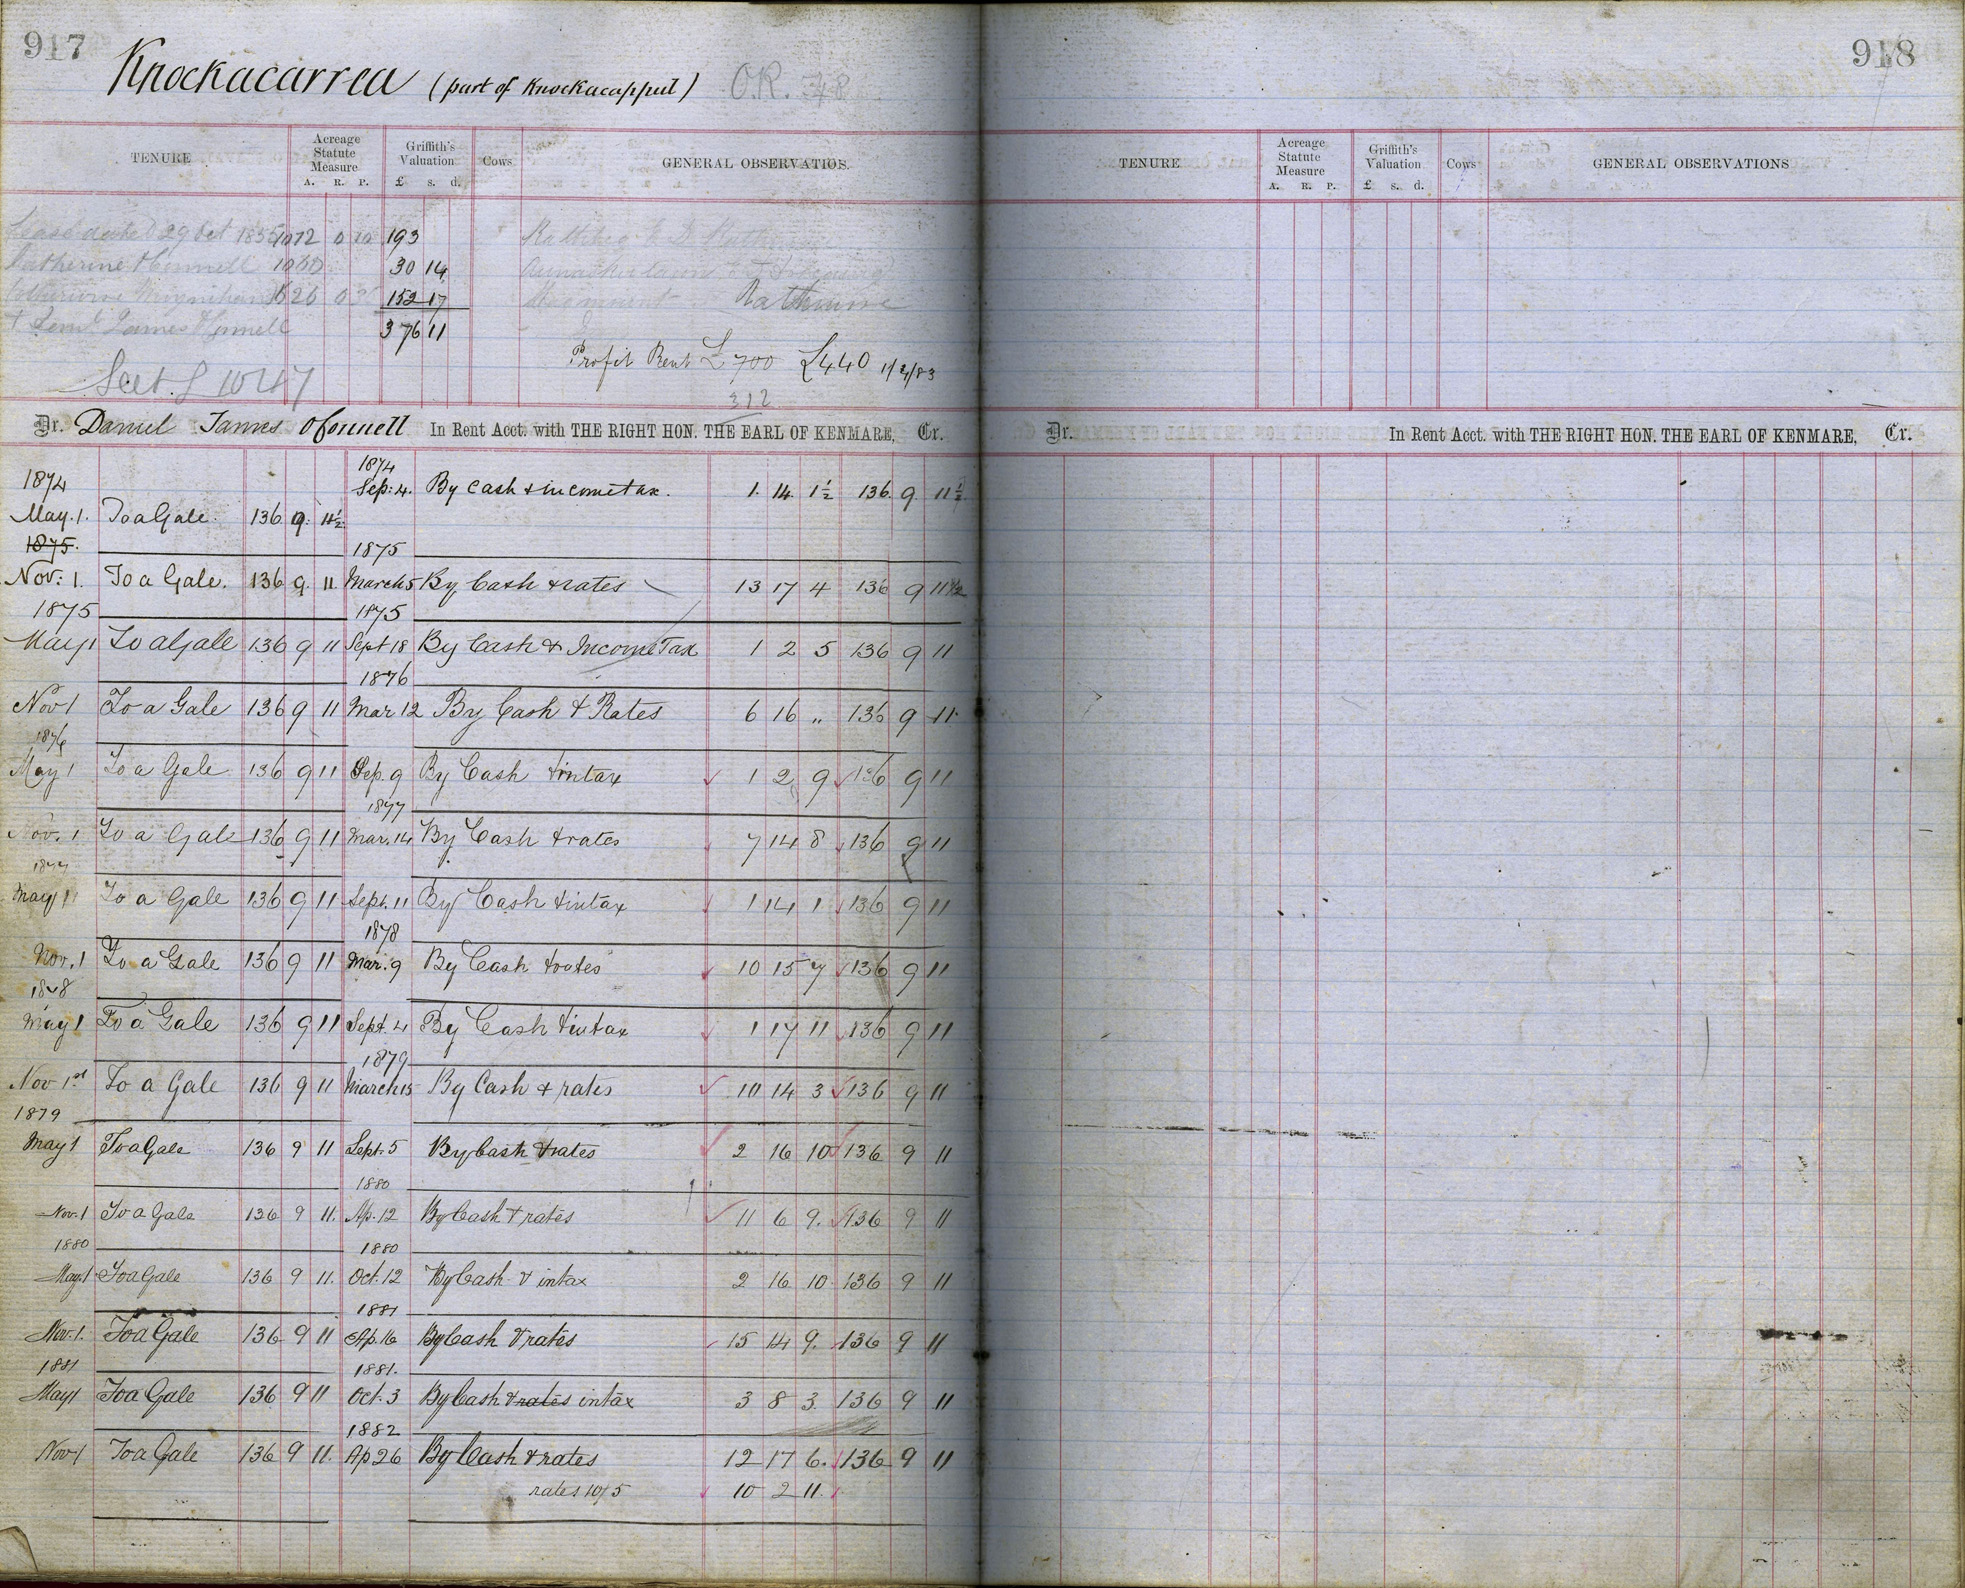 917
Knockacarrea (part of Knockacappul) O.R. 48
TENURE Acreage Statute Measure A. R. P. Griffith's Valuation £ s. d. Cows GENERAL OBSERVATIOS.
Lease dated 29 Oct 1855 1072 0 193
Catherine OConnell 30 14
Catherine Moynihan 626 0 152 17 Rathmore
James OConnell 376 11
Profit Rent £700 £440 1/2/83
312
Dr. Daniel James OConnell In Rent Acct. with THE RIGHT HON. THE EARL OF KENMARE, Cr.
1874 1874
Sep: 4. By cash & income tax. 1. 14. 1½ 136. 9. 11½
May. 1. To a Gale. 136 9. 11½
1875. 1875
Nov: 1. To a Gale. 136 9. 11 March 5 By Cash & rates 13 17 4 136 9 11½
1875 1875
May 1 To a Gale 136 9 11 Sept 18 By Cash & Income Tax 1 2 5 136 9 11
1876
Nov 1 To a Gale 136 9 11 Mar 12 By Cash & Rates 6 16 " 136 9 11.
1876
May 1 To a Gale 136 9 11 Sep. 9 By Cash & intax 1 2 9 136 9 11
1877
Nov. 1 To a Gale 136 9 11 Mar. 14 By Cash & rates 7 14 8 136 9 11
1877
May 1 To a Gale 136 9 11 Sept. 11 By Cash & intax 1 14 1 136 9 11
1878
Nov. 1 To a Gale 136 9 11 Mar. 9 By Cash & rates 10 15 7 136 9 11
1878
May 1 To a Gale 136 9 11 Sept. 4 By Cash & intax 1 17 11 136 9 11
1879
Nov 1st To a Gale 136 9 11 March 15 By Cash & rates 10 14 3 136 9 11
1879
May 1 To a Gale 136 9 11 Sept. 5 By Cash & rates 2 16 10 136 9 11
1880
Nov. 1 To a Gale 136 9 11. Ap. 12 By Cash & rates 11 6 9. 136 9 11
1880 1880
May. 1 To a Gale 136 9 11. Oct. 12 By Cash & intax 2 16 10 136 9 11
1881
Nov. 1. To a Gale 136 9 11 Ap. 16 By Cash & rates 15 14 9. 136 9 11
1881 1881.
May 1 To a Gale 136 9 11 Oct. 3 By Cash & rates intax 3 8 3. 136 9 11
1882
Nov 1 To a Gale 136 9 11. Ap 26 By Cash & rates 12 17 6. 136 9 11
rates 10/5 10 2 11.
918
TENURE Acreage Statute Measure A. R. P. Griffith's Valuation £ s. d. Cows GENERAL OBSERVATIONS
Dr. In Rent Acct. with THE RIGHT HON. THE EARL OF KENMARE, Cr.